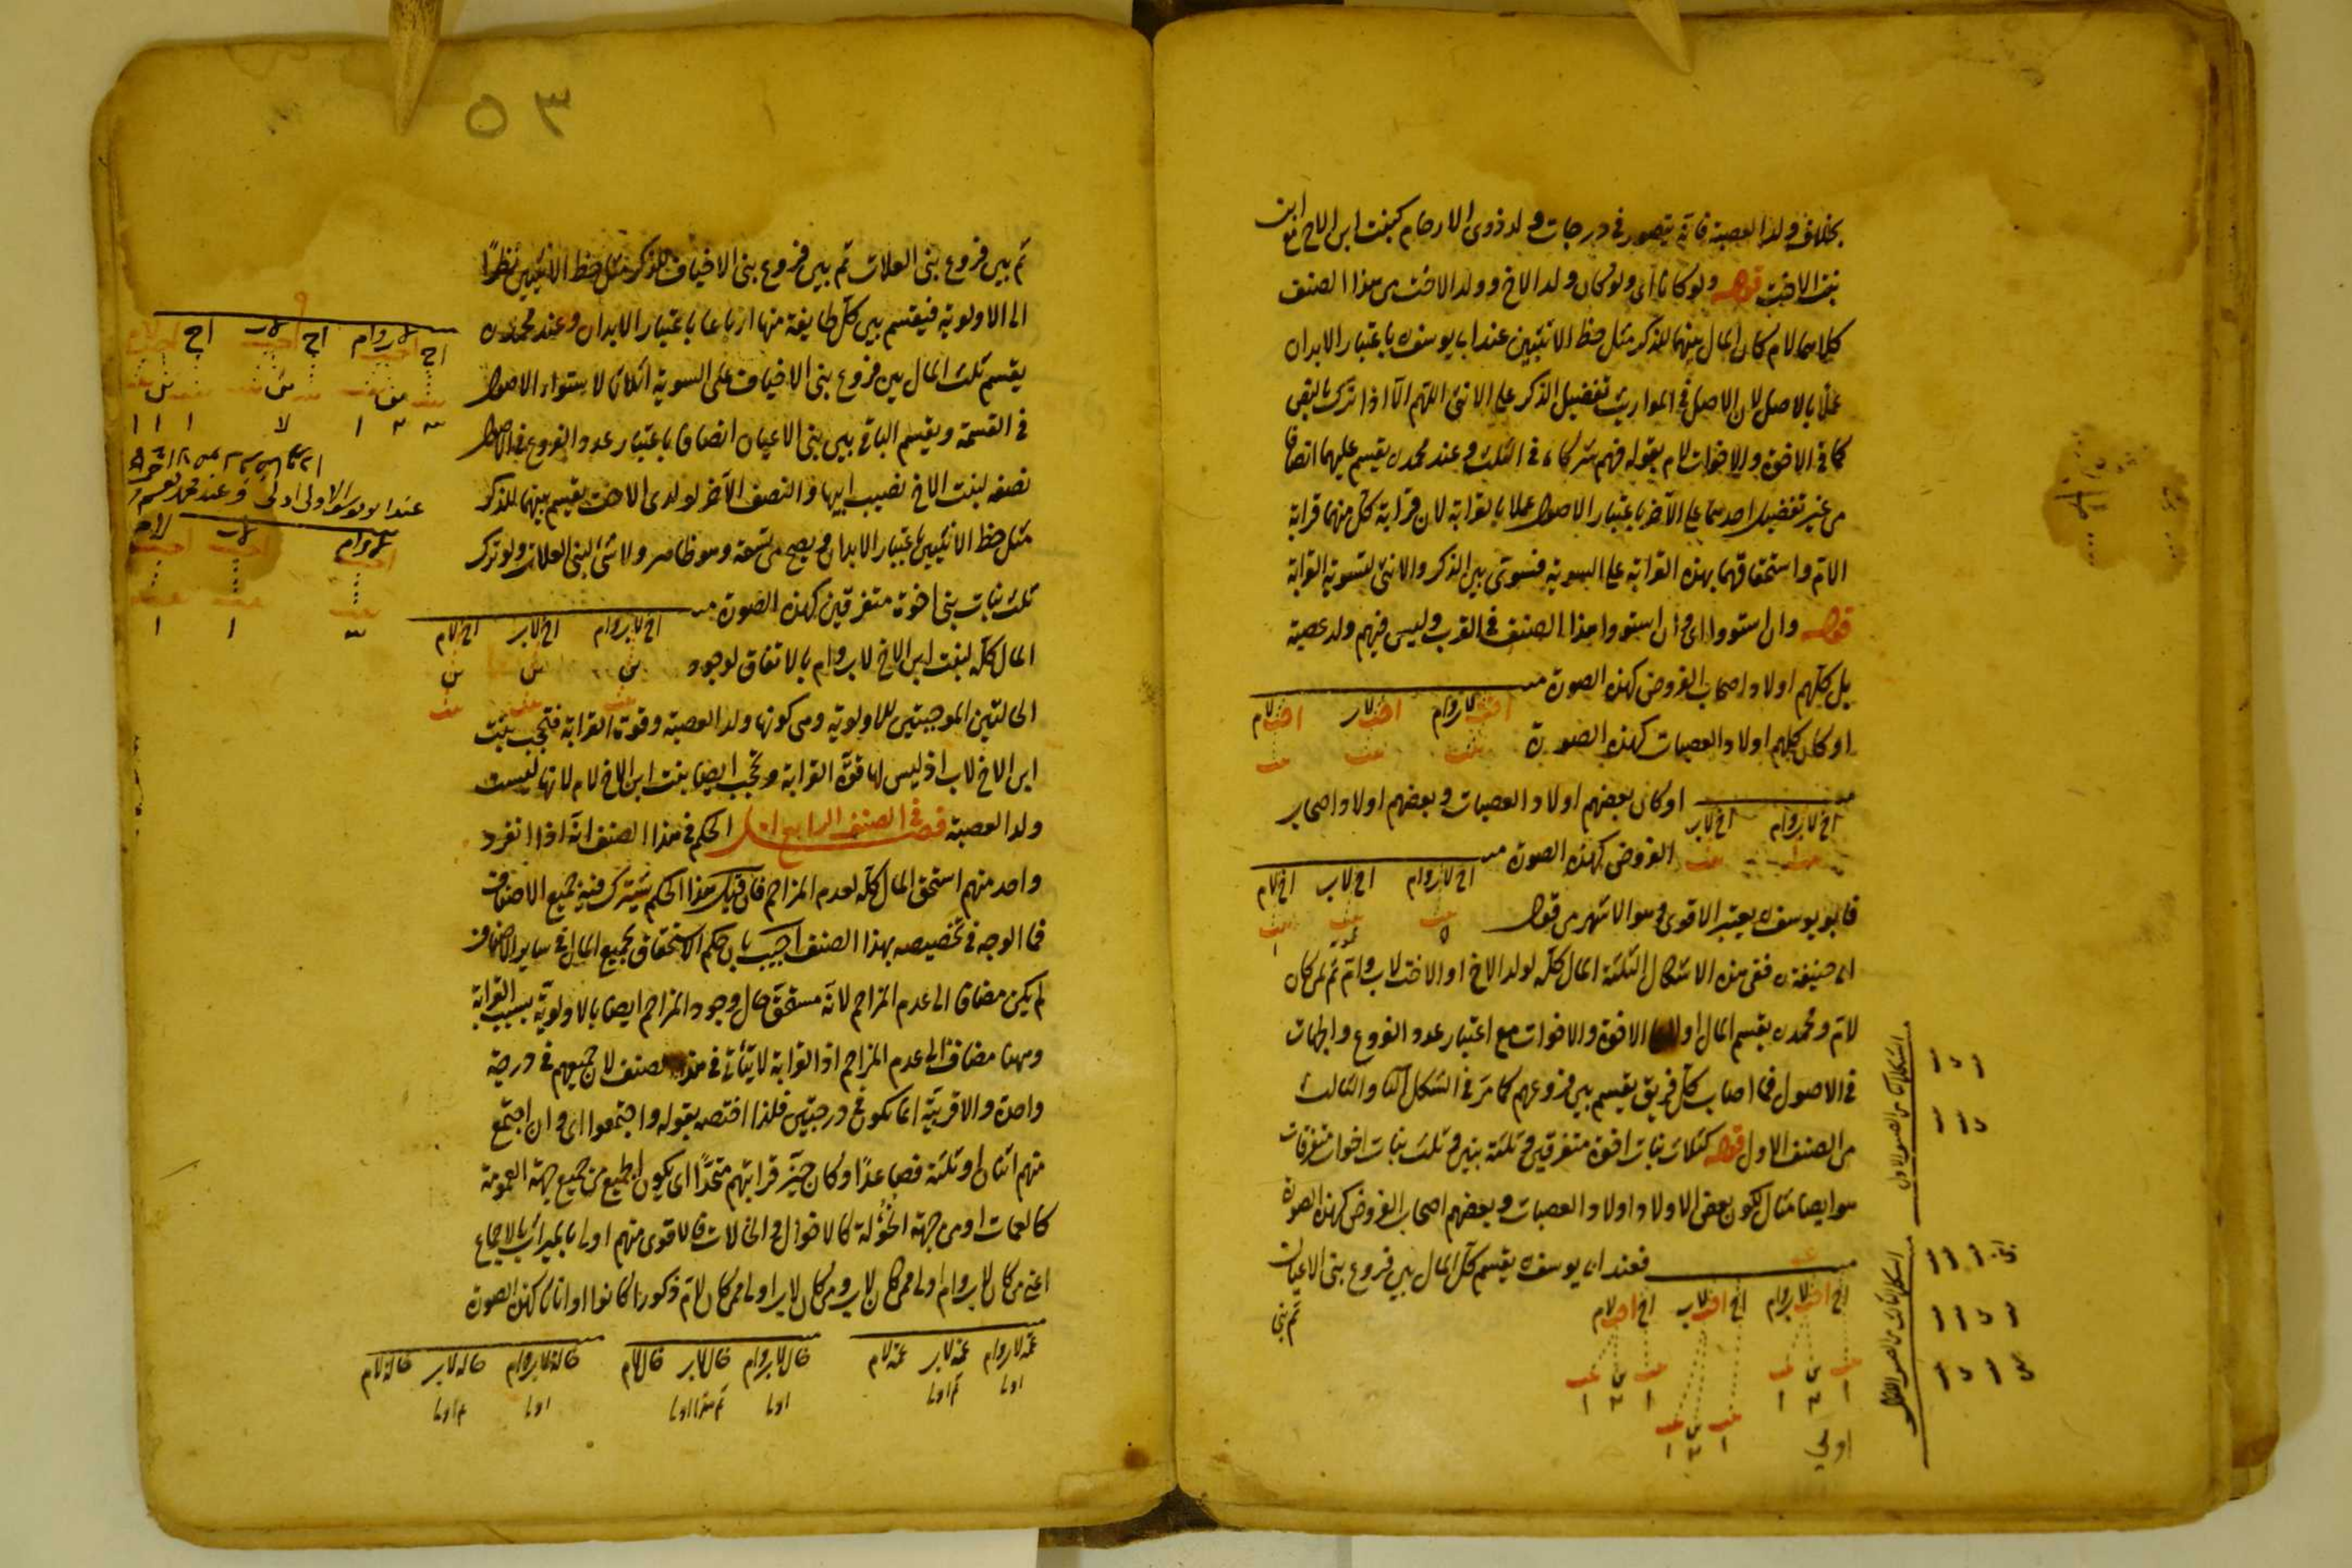 بخلاف ولد العصبة فانه يتصور في درجات ولد ذوى الارحام كبنت ابن الاخ مع ابن
بنت الاخت قوله ولو كانا اى ولو كان ولد الاخ وولد الاخت من هذا الصنف
كلاهما لام كان المال بينهما للذكر مثل حظ الانثيين عند ابى يوسف ره باعتبار الابدان
عملا بالاصل لان الاصل في المواريث تفضيل الذكر على الانثى اللهم الا اذا ترك بنص
كما في الاخوة والاخوات لام بقوله فهم شركاء في الثلث وعند محمد ره يقسم عليهما انصافا
من غير تفضيل احدهما على الآخر باعتبار الاصول عملا بالقرابة لان قرابة كل منهما قرابة
الام واستحقاقهما بهذه القرابة على السوية فسوى بين الذكر والانثى لتسوية القرابة
قوله وان استووا اى وان استووا هذا الصنف في القرب وليس فيهم ولد عصبة
بل كلهم اولاد اصحاب الفروض كهذه الصورة
اخت لاب وام اخت لاب اخت لام
او كان كلهم اولاد العصبات كهذه الصورة
بنت بنت بنت
او كان بعضهم اولاد العصبات وبعضهم اولاد اصحاب
اخ لاب وام اخ لاب
الفروض كهذه الصورة
اخ لاب وام اخ لاب اخ لام
فابو يوسف ره يعتبر الاقوى وهو الاشهر من قول
ابى حنيفة ره ففى هذه الاشكال الثلثة المال كله لولد الاخ او الاخت لاب وام ثم لمن كان
لام ومحمد ره يقسم المال اولا على الاخوة والاخوات مع اعتبار عدد الفروع والجهات
في الاصول فما اصاب كل فريق يقسم بين فروعهم كما مر في الشكل الثانى والثالث
من الصنف الاول قوله كثلاث بنات اخوة متفرقين وثلثة بنين وثلث بنات اخوات متفرقات
هو ايضا مثال لكون بعض الاولاد اولاد العصبات وبعضهم اصحاب الفروض كهذه الصورة
فعند ابى يوسف ره يقسم كل المال بين فروع بنى الاعيان
اخ اخت لاب وام اخ اخت لاب اخ اخت لام
ثم بنى
اولى
٥٣
ثم بين فروع بنى العلات ثم بين فروع بنى الاخياف للذكر مثل حظ الانثيين نظرا
الى الاولوية فيقسم بين كل طايفة منها ارباعا باعتبار الابدان وعند محمد ره
يقسم ثلث المال بين فروع بنى الاخياف على السوية اثلاثا لاستواء الاصول
في القسمة ويقسم الباقى بين بنى الاعيان انصافا باعتبار عدد الفروع في الاصول
نصفه لبنت الاخ نصيب ابيها والنصف الآخر لولدى الاخت يقسم بينهما للذكر
مثل حظ الانثيين باعتبار الابدان ويصح من تسعة وهو ظاهر ولا شئ لبنى العلات ولو ترك
ثلث بنات بنى اخوة متفرقين كهذه الصورة
اخ لاب وام اخ لاب اخ لام
المال كله لبنت ابن الاخ لاب وام بالاتفاق لوجود
الحالتين الموجبتين للاولوية وهى كونها ولد العصبة وقوة القرابة فتحجب بنت
ابن الاخ لاب اذ ليس لها قوة القرابة وتحجب ايضا بنت ابن الاخ لام لانها ليست
ولد العصبة فصل في الصنف الرابع الحكم في هذا الصنف انه اذا انفرد
واحد منهم استحق المال كله لعدم المزاحم فان قيل هذا الحكم يشترك فيه جميع الاصناف
فما الوجه في تخصيصه بهذا الصنف اجيب بان حكم الاستحقاق بجميع المال في ساير الاصناف
لم يكن مضافا الى عدم المزاحم لانه مستحق حال وجود المزاحم ايضا بالاولوية بسبب القرابة
وههنا مضاف الى عدم المزاحم اذ القرابة لا يتأتى في هذا الصنف لان جميعهم في درجة
واحدة والاقربية انما يكون في درجتين فلذا اختصه بقوله واجتمعوا اى وان اجتمع
منهم اثنان او ثلثة فصاعدا وكان حيز قرابتهم متحدا اى يكون الجميع من جميع جهة العمومة
كالعمات او من جهة الخؤلة كالاخوال والخالات فالاقوى منهم اولى بالميراث بالاجماع
اعنى من كان لاب وام اولى ممن كان لاب ومن كان لاب اولى ممن كان لام ذكورا كانوا او اناثا كهذه الصورة
عمة لاب وام عمة لاب عمة لام
خال لاب وام خال لاب خال لام
خالة لاب وام خالة لاب خالة لام
اولى ثم اولى
اولى ثم هذا اولى
اولى ثم اولى